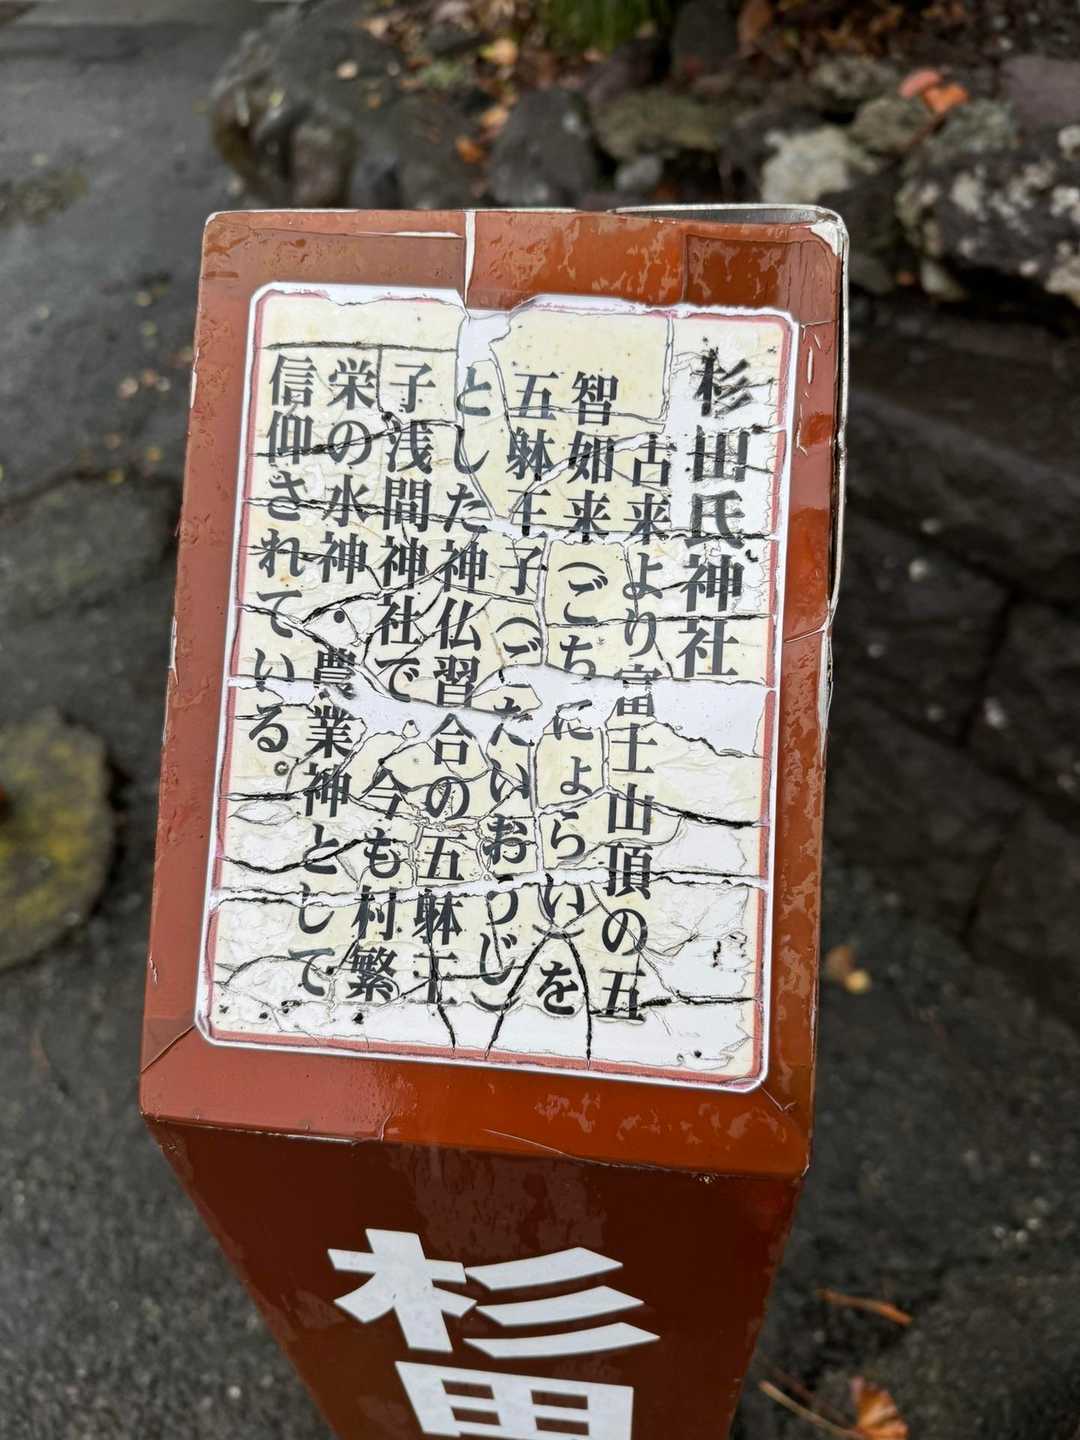 杉田氏神社
古来より富士山頂の五
智如来(ごちにょらい)を
五躰王子(ごたいおうじ)
とした神仏習合の五躰王
子浅間神社で、今も村繁
栄の水神・農業神として
信仰されている。
杉田